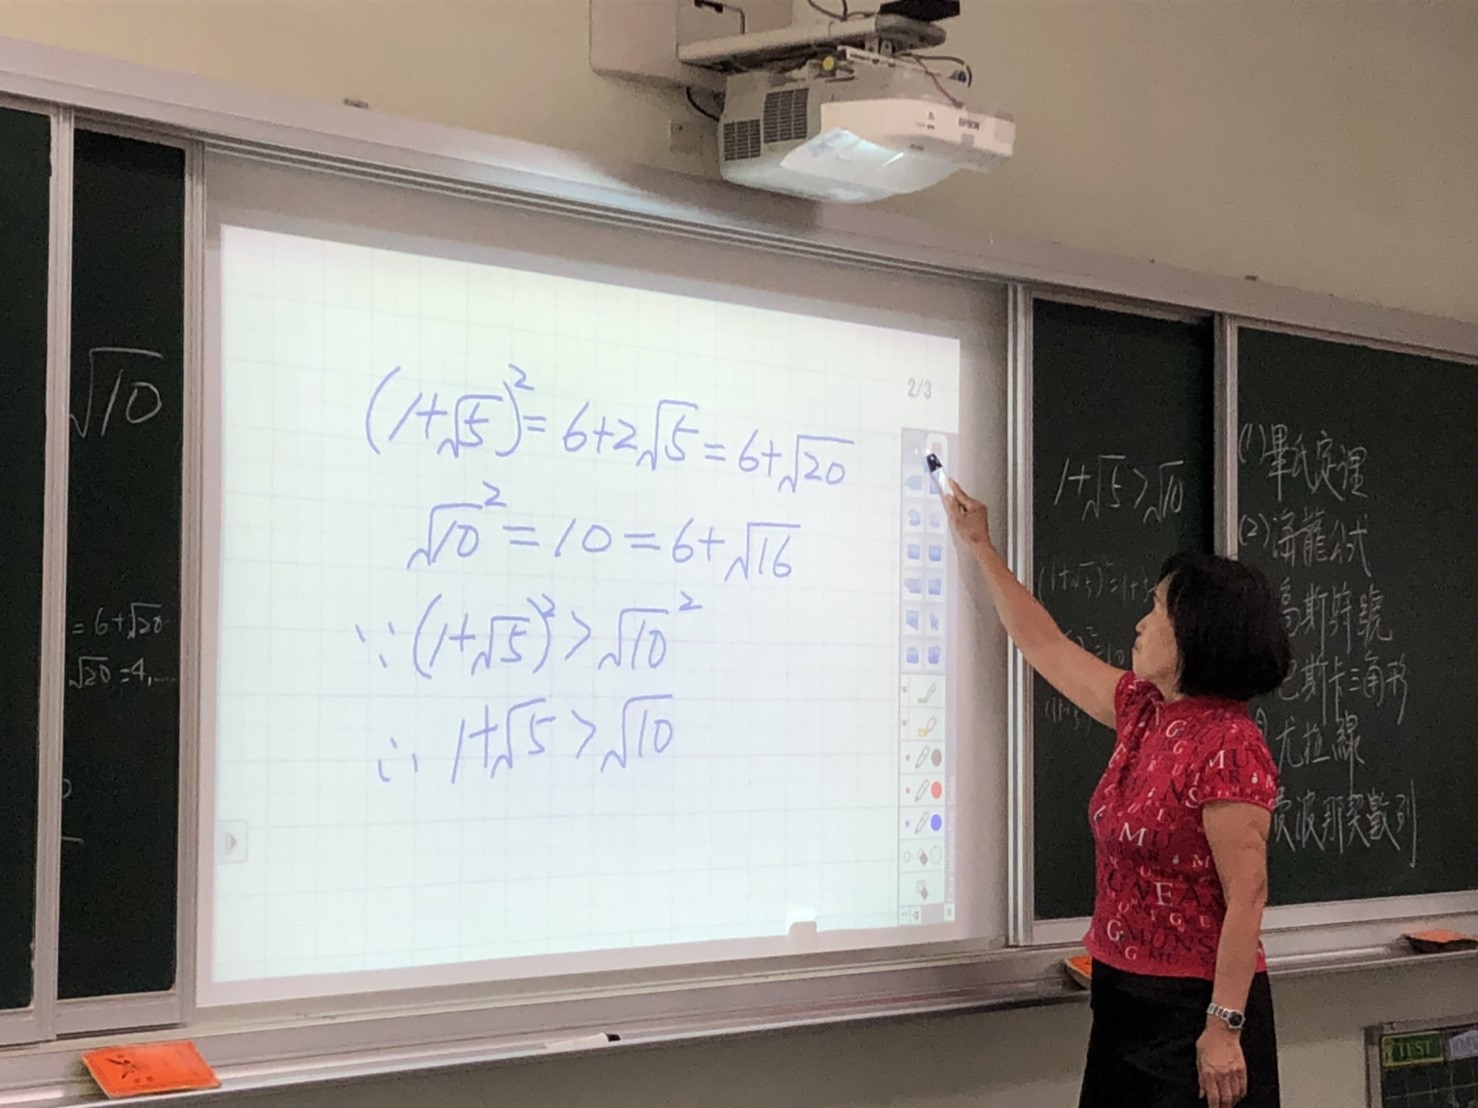 √10
= 6+√20
√20 = 4,....
(1+√5)² = 6+2√5 = 6+√20
√10² = 10 = 6+√16
∵ (1+√5)² > √10²
∴ 1+√5 > √10
2/3
EPSON
1+√5 > √10
(1) 畢氏定理
(2) 海龍公式
高斯符號
巴斯卡三角形
尤拉線
費波那契數列
TEST